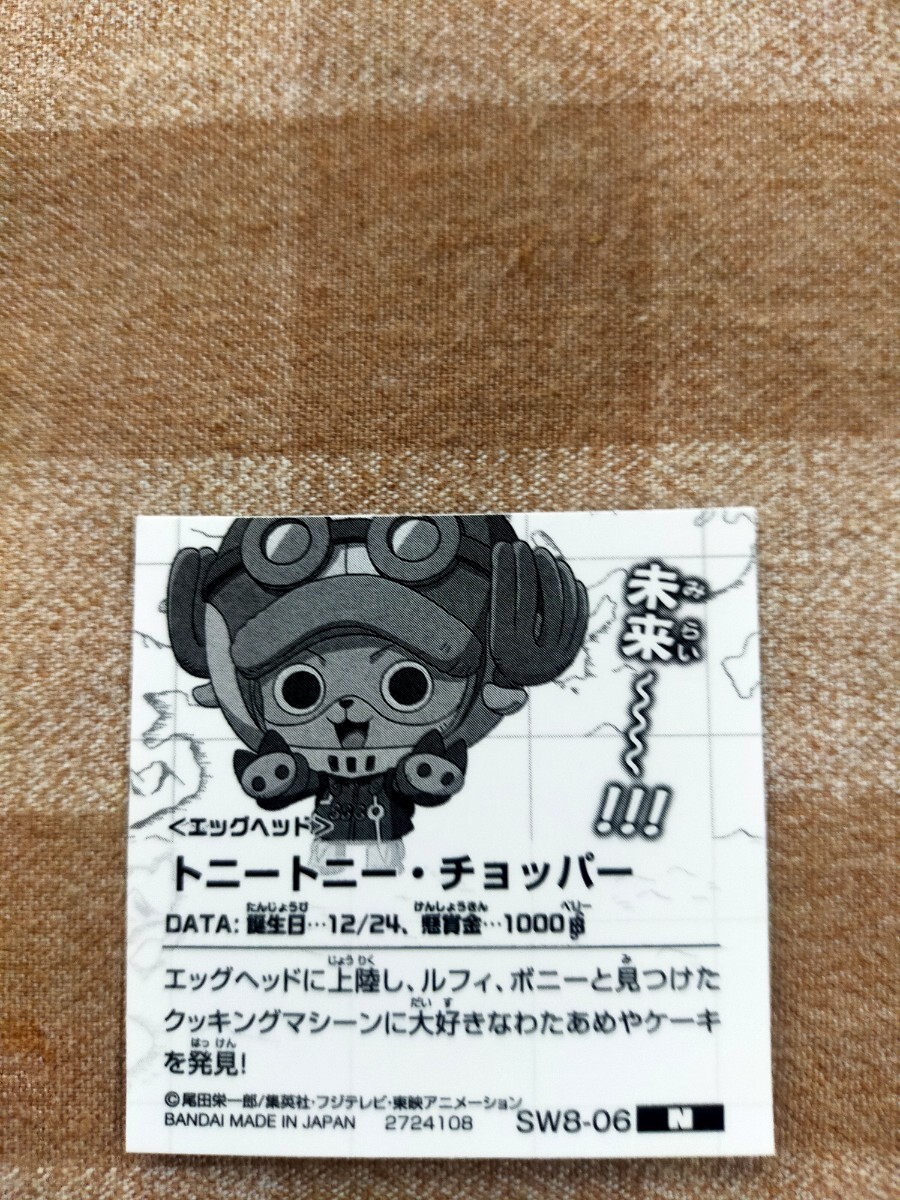 未来～～～!!!
みらい
<エッグヘッド>
トニートニー・チョッパー
たんじょうび けんしょうきん ベリー
DATA: 誕生日…12/24、懸賞金…1000
じょうりく み
エッグヘッドに上陸し、ルフィ、ボニーと見つけた
だいす
クッキングマシーンに大好きなわたあめやケーキ
はっけん
を発見!
©尾田栄一郎/集英社・フジテレビ・東映アニメーション
BANDAI MADE IN JAPAN 2724108 SW8-06 N